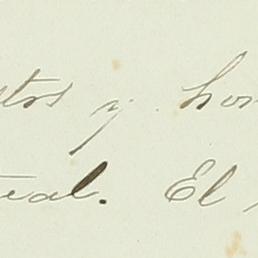 tros y hon
teal. El